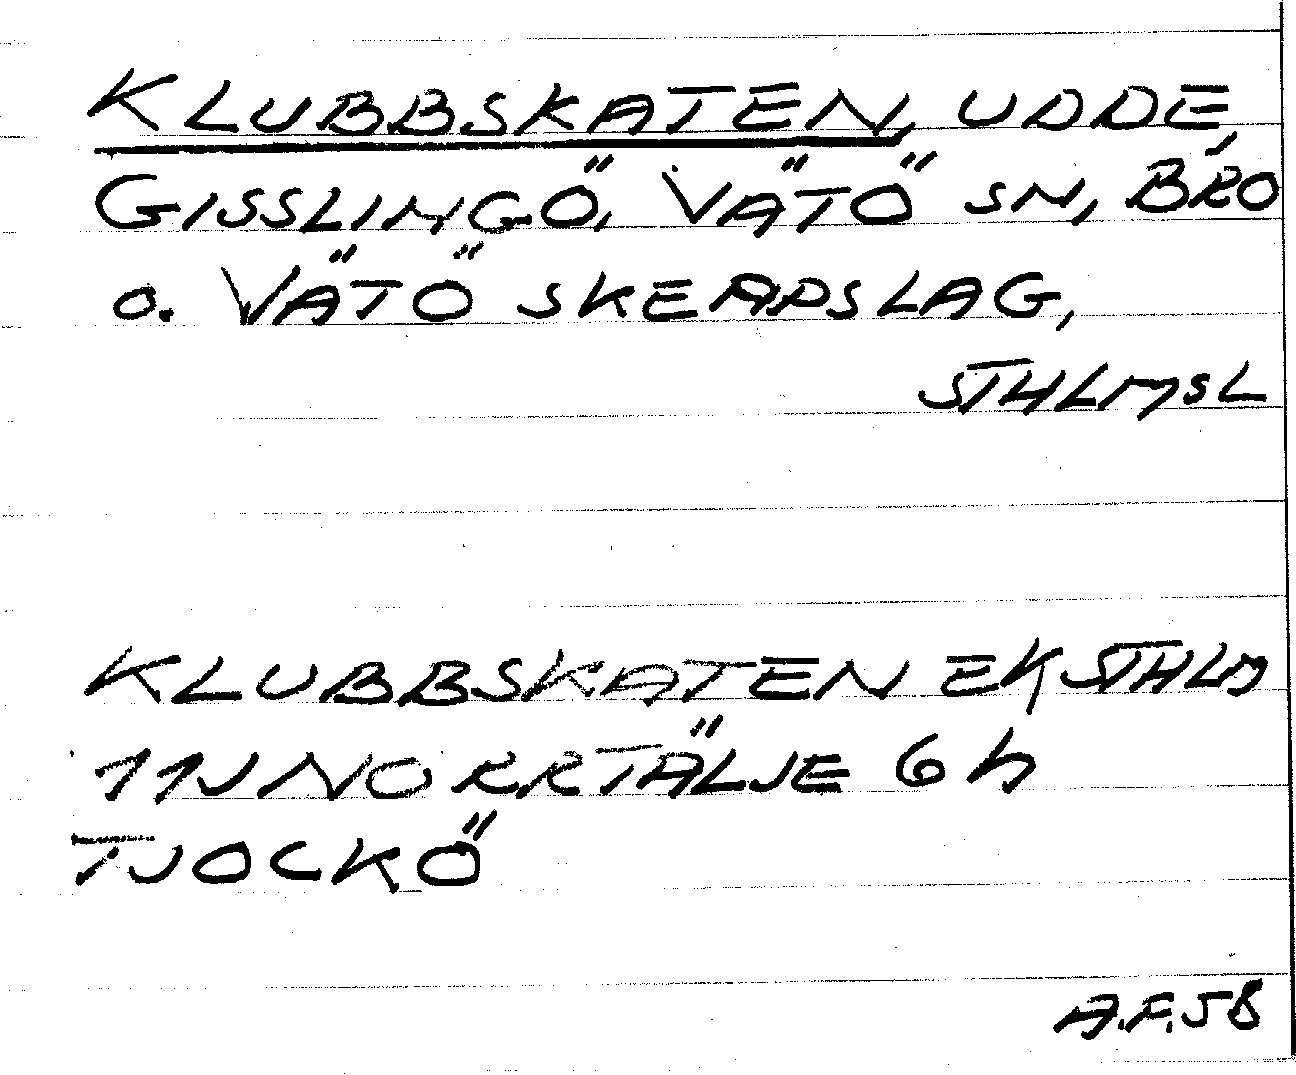 KLUBBSKATEN, UDDE,
GISSLINGÖ, VÄTÖ SN, BRO
o. VÄTÖ SKEPPSLAG,
STHLMSL
KLUBBSKATEN EK STHLM
11J NORRTÄLJE 6h
TJOCKÖ
A.F. 58